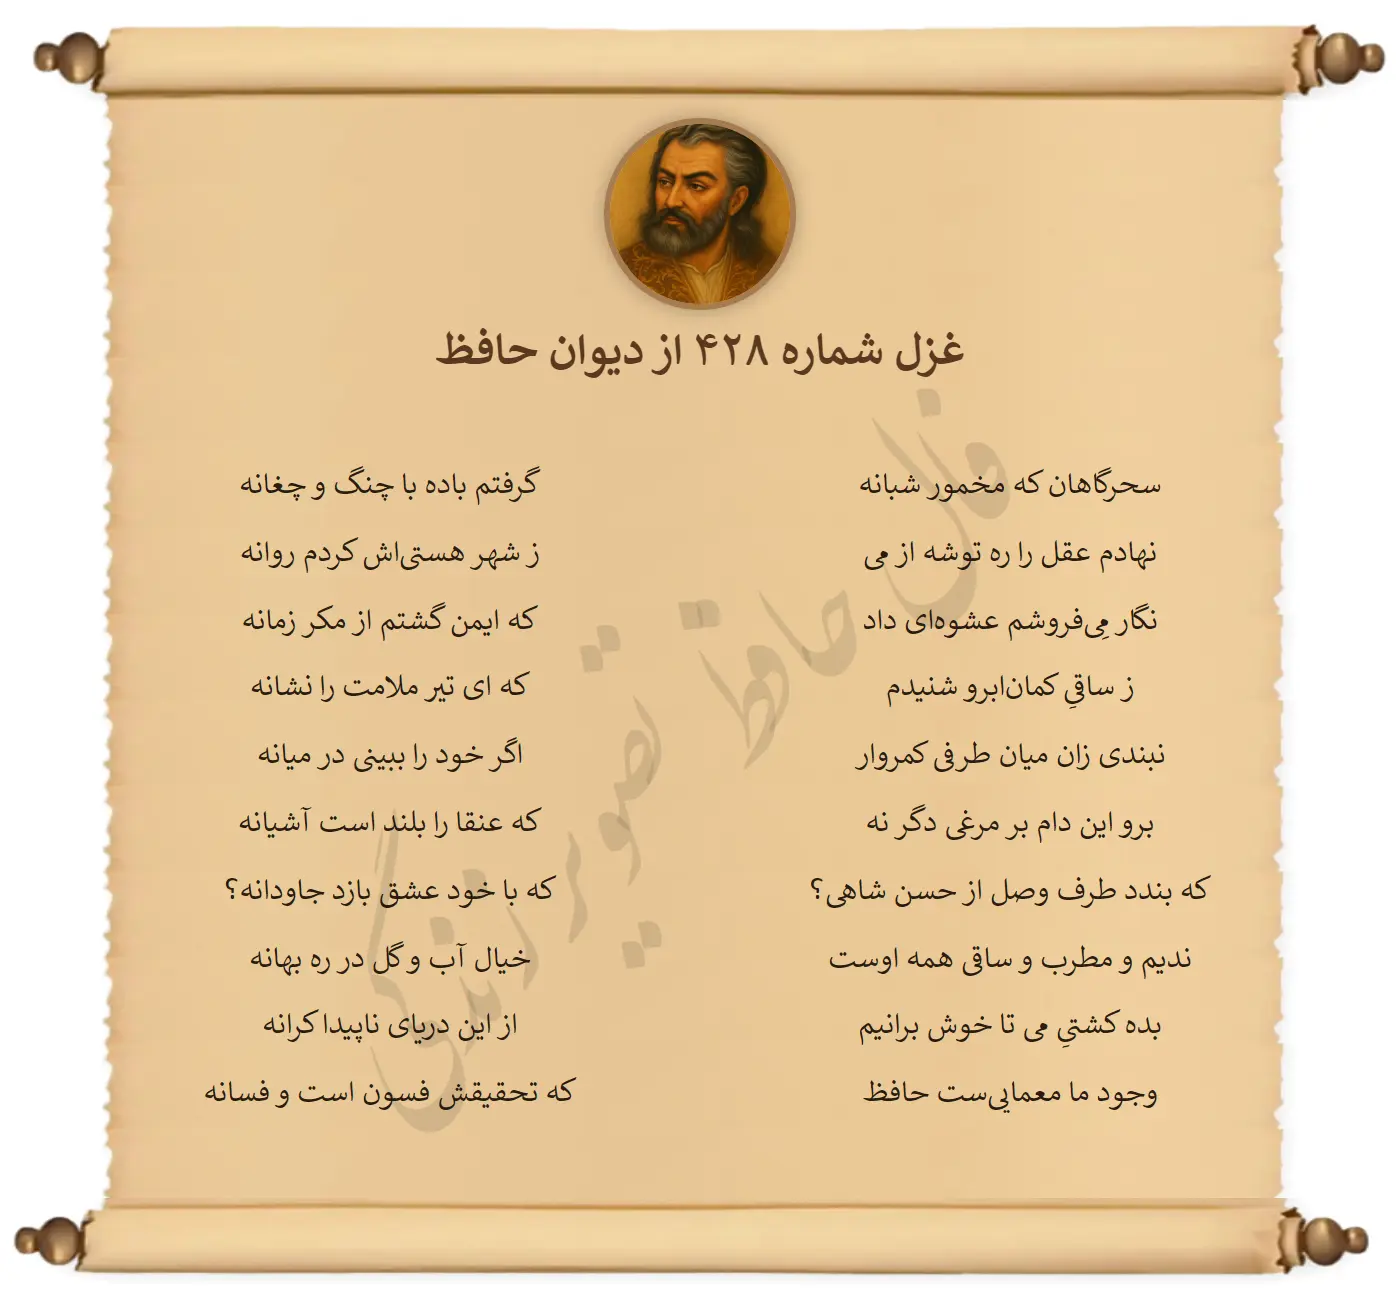 غزل شماره ۴۲۸ از دیوان حافظ
سحرگاهان که مخمور شبانه
گرفتم باده با چنگ و چغانه
نهادم عقل را ره توشه از می
ز شهر هستی‌اش کردم روانه
نگار مِی‌فروشم عشوه‌ای داد
که ایمن گشتم از مکر زمانه
ز ساقیِ کمان‌ابرو شنیدم
که ای تیر ملامت را نشانه
نبندی زان میان طرفی کمروار
اگر خود را ببینی در میانه
برو این دام بر مرغی دگر نه
که عنقا را بلند است آشیانه
که بندد طرف وصل از حسن شاهی؟
که با خود عشق بازد جاودانه؟
ندیم و مطرب و ساقی همه اوست
خیال آب و گل در ره بهانه
بده کشتیِ می تا خوش برانیم
از این دریای ناپیدا کرانه
وجود ما معمایی‌ست حافظ
که تحقیقش فسون است و فسانه
فال حافظ تصویر زندگی